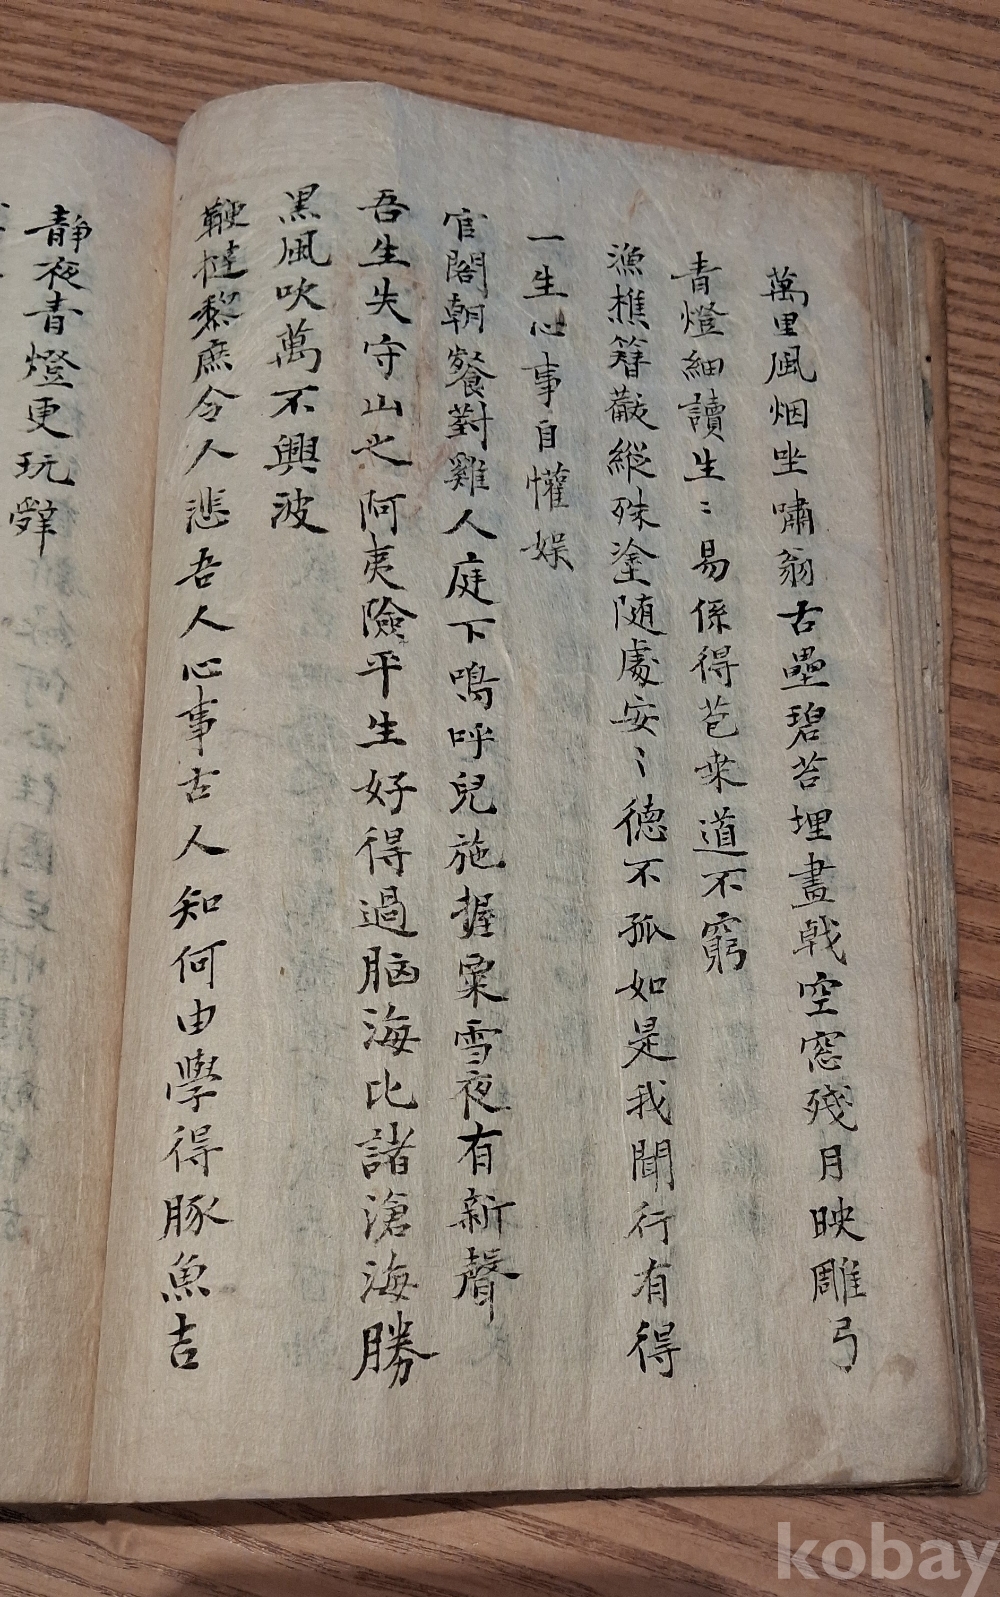 萬里風烟坐嘯翁古壘碧苔埋畫戟空窓殘月映雕弓
青燈細讀生〻易係得苞桒道不窮
漁樵簪黻縱殊塗随處安〻德不孤如是我聞行有得
一生心事自懽娱
官閣朝餐對雞人庭下鳴呼兒施握粟雪夜有新聲
吾生失守山之阿夷險平生好得過脳海比諸滄海勝
黑風吹萬不興波
鞭撻黎庶令人悲吾人心事古人知何由學得豚魚吉
静夜青燈更玩辭
kobay